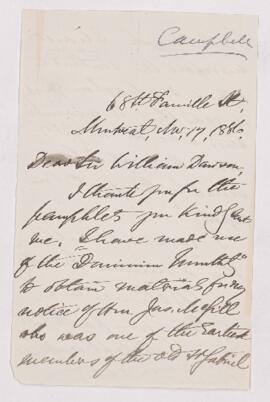 Campbell
68 St Famille St.
Montreal, Nov. 17, 1886.
Dear Sir William Dawson,
I thank you for the
pamphlets you kindly sent
me. I have made use
of the Dominion Monthly
to obtain materials for my
notice of Hon Jas. McGill
who was one of the earliest
members of the old St Gabriel